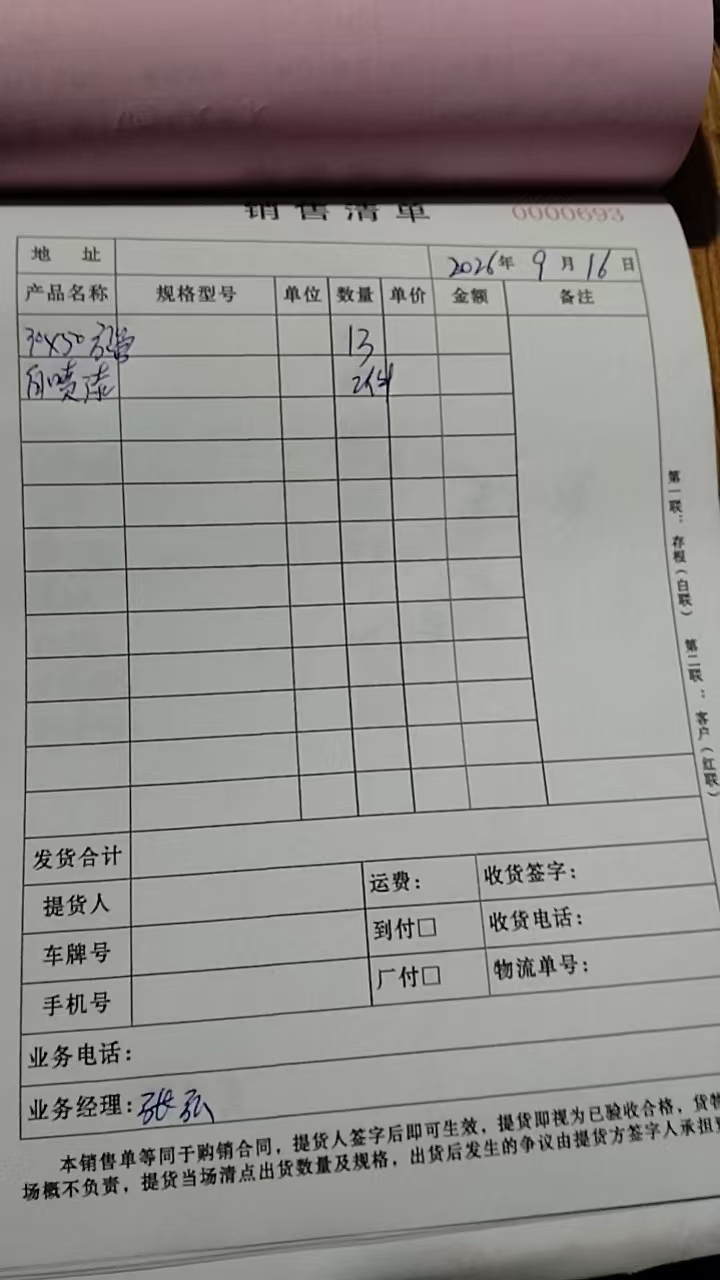 销售清单 0000693
地 址 2026年 9月 16日
产品名称 规格型号 单位 数量 单价 金额 备注
30×50方管 13
自喷漆 2件
第一联：存根（白联） 第二联：客户（红联）
发货合计
提货人 运费： 收货签字：
车牌号 到付□ 收货电话：
手机号 厂付□ 物流单号：
业务电话：
业务经理：张
本销售单等同于购销合同，提货人签字后即可生效，提货即视为已验收合格，货物
场概不负责，提货当场清点出货数量及规格，出货后发生的争议由提货方签字人承担